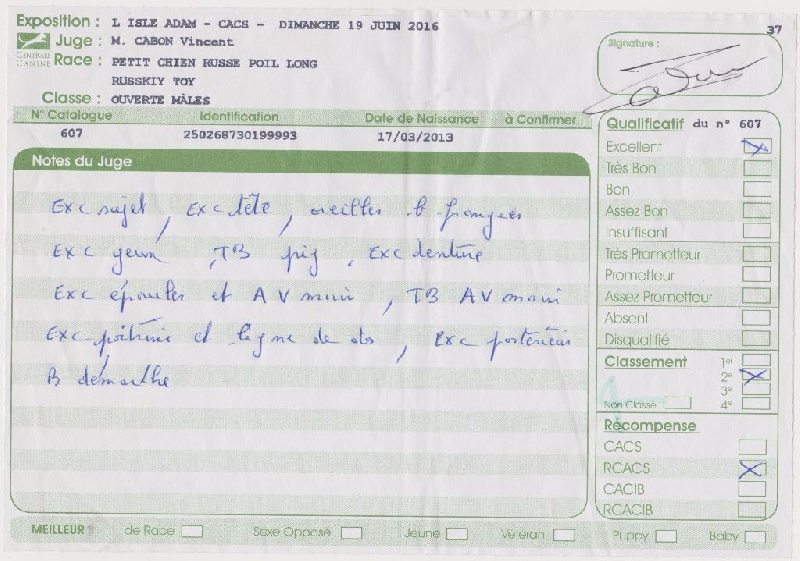 Exposition : L ISLE ADAM - CACS - DIMANCHE 19 JUIN 2016
37
CENTRALE CANINE
Juge : M. CABON Vincent
Signature :
Race : PETIT CHIEN RUSSE POIL LONG
RUSSKIY TOY
Classe : OUVERTE MÂLES
N° Catalogue Identification Date de Naissance à Confirmer
607 250268730199993 17/03/2013
Qualificatif du n° 607
Notes du Juge
Excellent
Très Bon
Bon
Assez Bon
Insuffisant
Très Prometteur
Prometteur
Assez Prometteur
Absent
Disqualifié
Exc sujet, Exc tête, oreilles b frangées
Exc yeux, TB pig, Exc denture
Exc épaules et AV main, TB AV main
Exc poitrine et ligne de dos, Exc postérieur
B démarche
Classement 1er
2e
3e
Non Classé 4e
Récompense
CACS
RCACS
CACIB
RCACIB
MEILLEUR de Race Sexe Opposé Jeune Vétéran Puppy Baby